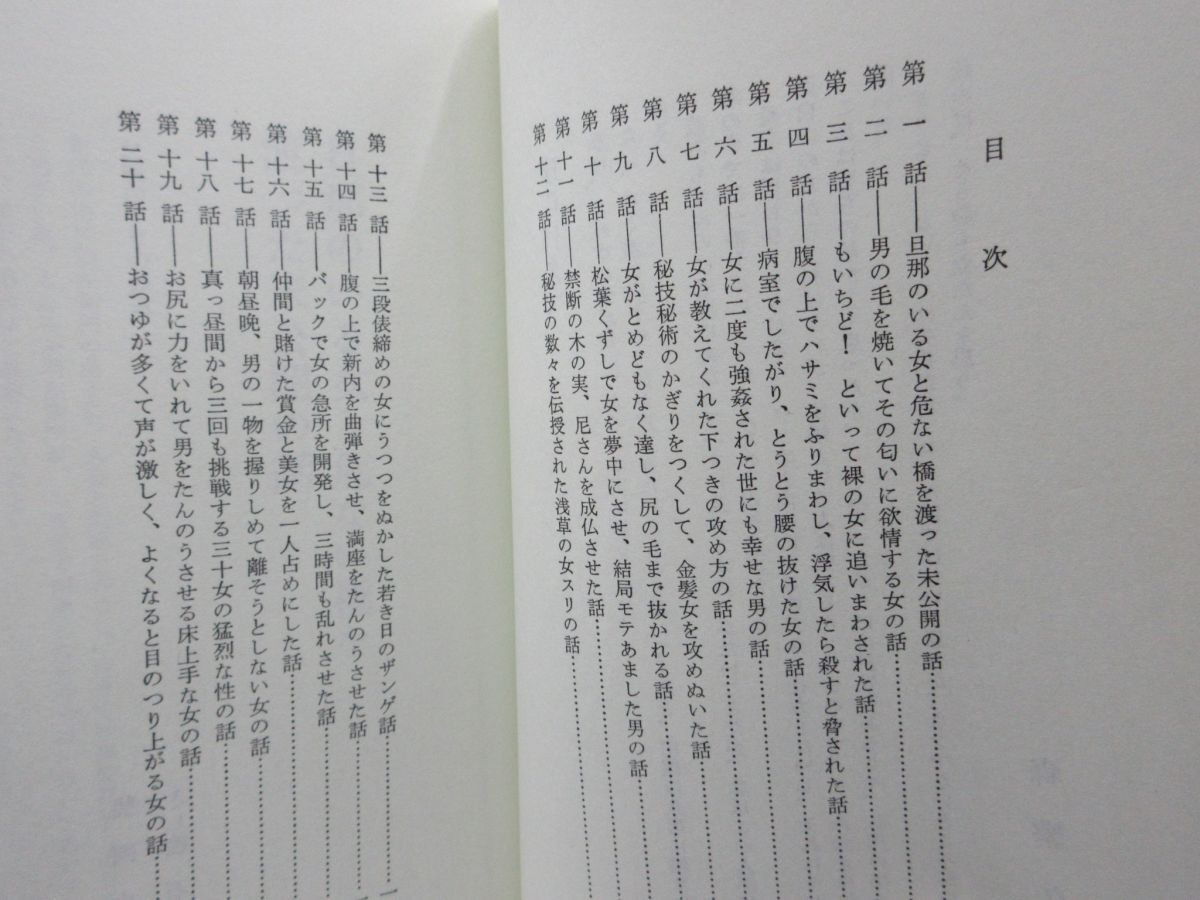 目次
第一話――旦那のいる女と危ない橋を渡った未公開の話
第二話――男の毛を焼いてその匂いに欲情する女の話
第三話――もいちど！　といって裸の女に追いまわされた話
第四話――腹の上でハサミをふりまわし、浮気したら殺すと脅された話
第五話――病室でしたがり、とうとう腰の抜けた女の話
第六話――女に二度も強姦された世にも幸せな男の話
第七話――女が教えてくれた下つきの攻め方の話
第八話――秘技秘術のかぎりをつくして、金髪女を攻めぬいた話
第九話――女がとめどもなく達し、尻の毛まで抜かれる話
第十話――松葉くずしで女を夢中にさせ、結局モテあました男の話
第十一話――禁断の木の実、尼さんを成仏させた話
第十二話――秘技の数々を伝授された浅草の女スリの話
第十三話――三段俵締めの女にうつつをぬかした若き日のザンゲ話
第十四話――腹の上で新内を曲弾きさせ、満座をたんのうさせた話
第十五話――バックで女の急所を開発し、三時間も乱れさせた話
第十六話――仲間と賭けた賞金と美女を一人占めにした話
第十七話――朝昼晩、男の一物を握りしめて離そうとしない女の話
第十八話――真っ昼間から三回も挑戦する三十女の猛烈な性の話
第十九話――お尻に力をいれて男をたんのうさせる床上手な女の話
第二十話――おつゆが多くて声が激しく、よくなると目のつり上がる女の話